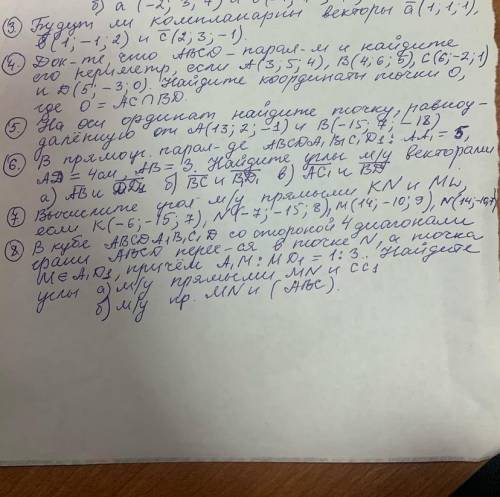 б) a (-2; 3; 7) и
③ Будут ли компланарны векторы a(1; 1; 1),
b(1; -1; 2) и c(2; 3; -1).
④ Док-те, что ABCD - парал-м и найдите
его периметр, если A(3; 5; 4), B(4; 6; 5), C(6; -2; 1)
и D(5; -3; 0). Найдите координаты точки O,
где O = AC ∩ BD.
⑤ На оси ординат найдите точку, равноу-
далённую от A(13; 2; -1) и B(-15; 7; -18)
⑥ В прямоуг. парал-де ABCDA₁B₁C₁D₁: AA₁ = 5,
AD = 4см, AB = 3. Найдите углы м/у векторами
а) AB и DD₁ б) BC и BD₁ в) AC₁ и BD
⑦ Вычислите угол м/у прямыми KN и MW,
если K(-6; -15; 7), N(-7; -15; 8), M(14; -10; 9),
⑧ В кубе ABCDA₁B₁C₁D со стороной 4 диагонали
грани ABCD перес-ся в точке N, а точка
M ∈ A₁D₁, причём A₁M : MD₁ = 1 : 3. Найдите
углы а) м/у прямыми MN и CC₁
б) м/у пр. MN и (ABC).